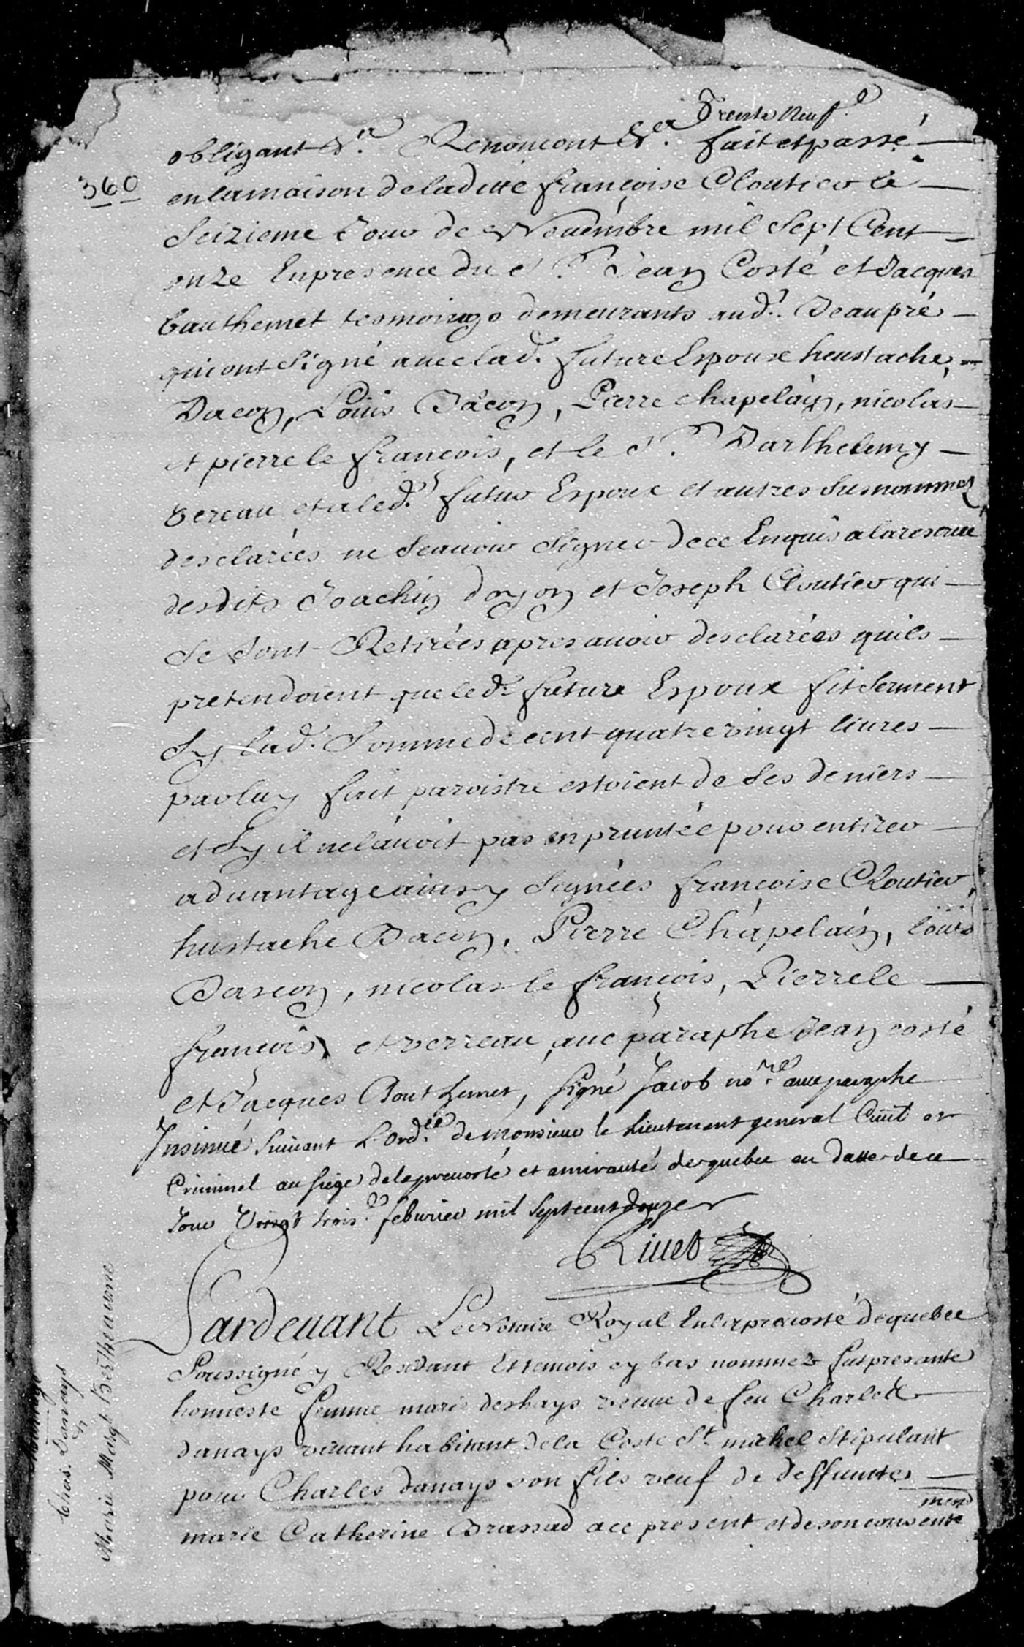 trente neuf.e
obligant &.a Renoncont &.a fait et passé
360
en la maison de ladite françoise Cloutier le
Seizieme Jour de Novembre mil Sept Cent
onze En presence du S.r Jean Costé et Jacques
bauthemet tesmoings demeurants aud.t Beaupré
qui ont Signé avec lad. future Espouse heustache
Bacon, Loüis Bâcon, Pierre chapelain, nicolas
et pierre le françois, et le S.r Barthelemy
Vereau et a led.t futur Espoux et autres Susnommez
desclarées ne Scavoir Signer de ce Enquis a la reserve
desdits Joachin doyon et Joseph Cloutier qui
Se Sont Retirées apres avoir desclarées quils
pretendoient que led.t future Espoux fit Serment
Sy lad. Somme de cent quatre vingt livres
par luy fait paroistre estoient de Ses deniers
et Sy il ne lavoit pas enpruntée pour en tirer
advantage ainsy Signées françoise Cloutier,
hustache Bacon, Pierre Chapelain, Louis
Bascon, nicolas le françois, Pierre le
françois, et verreau, avec paraphe Jean costé
et Jacques Bouthemet, Signé Jacob no.re avec paraphe
Insinué Suivant Lord.ce de Monsieur le Lieutenant general Civil et
Criminel au Siege de la prevosté et amirauté de quebec en datte de ce
Jour Vingt trois.e febvrier mil Sept cent douze
Rivet
Pardevant Le Notaire Royal En la prevosté de quebec
Soussigné y Residant Et temois cy bas nommez fut presante
honneste femme marie deshays veuve de feu Charle
danays vivant habitant de la Coste St. michel Stipulant
pour Charles danays son fils veuf de deffunte
marie Catherine Brassard a ce present et de son consente
ment
Mariage
Chas. Danays
&
Marie Magt Bertheaume